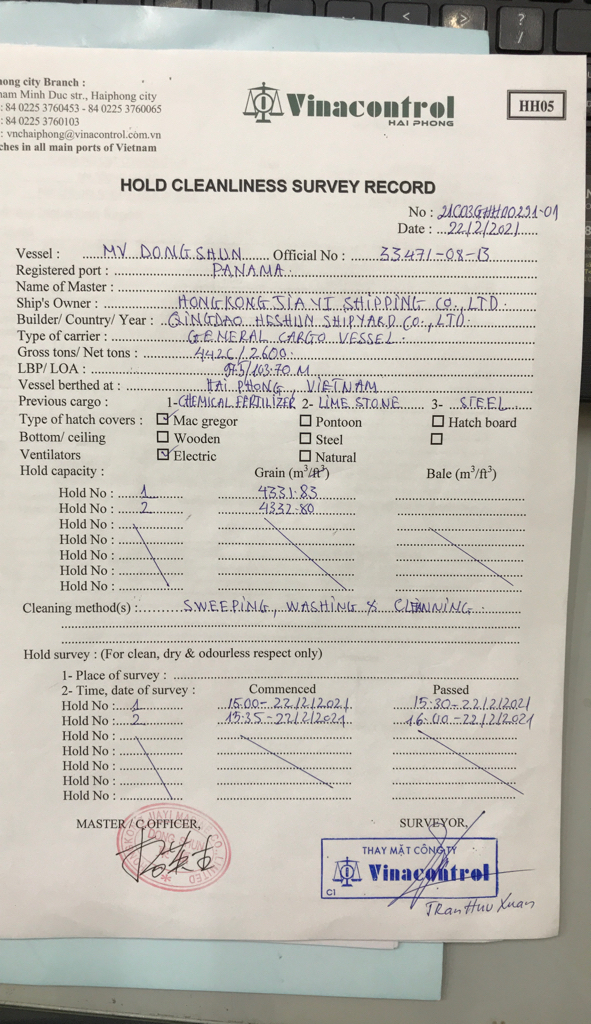 <
>
?
/
ong city Branch :
am Minh Duc str., Haiphong city
: 84 0225 3760453 - 84 0225 3760065
: 84 0225 3760103
: vnchaiphong@vinacontrol.com.vn
ches in all main ports of Vietnam
Vinacontrol
HAI PHONG
HH05
HOLD CLEANLINESS SURVEY RECORD
No : 21C03GHH00291-01
Date : 22/2/2021
Vessel : MV DONG SHUN Official No : 33471-08-B
Registered port : PANAMA.
Name of Master :
Ship's Owner : HONGKONG JIA YI SHIPPING CO., LTD.
Builder/ Country/ Year : QINGDAO HESHUN SHIPYARD CO., LTD.
Type of carrier : GENERAL CARGO VESSEL.
Gross tons/ Net tons : 4426/2600.
LBP/ LOA : 97.5/103.70 M
Vessel berthed at : HAI PHONG, VIETNAM
Previous cargo : 1- CHEMICAL FERTILIZER 2- LIME STONE 3- STEEL
Type of hatch covers : Mac gregor Pontoon Hatch board
Bottom/ ceiling Wooden Steel
Ventilators Electric Natural
Hold capacity : Grain (m³/ft³) Bale (m³/ft³)
Hold No : 1 4331.83
Hold No : 2 4332.80
Hold No :
Hold No :
Hold No :
Hold No :
Hold No :
Cleaning method(s): SWEEPING, WASHING & CLEANNING.
Hold survey : (For clean, dry & odourless respect only)
1- Place of survey :
2- Time, date of survey : Commenced Passed
Hold No : 1 15.00 - 22/2/2021 15:30 - 22/2/2021
Hold No : 2 15:35 - 22/2/2021 16:00 - 22/2/2021
Hold No :
Hold No :
Hold No :
Hold No :
Hold No :
MASTER / C.OFFICER, SURVEYOR,
DONG SHUN
THAY MẶT CÔNG TY
Vinacontrol
C1
Tran Huu Xuan